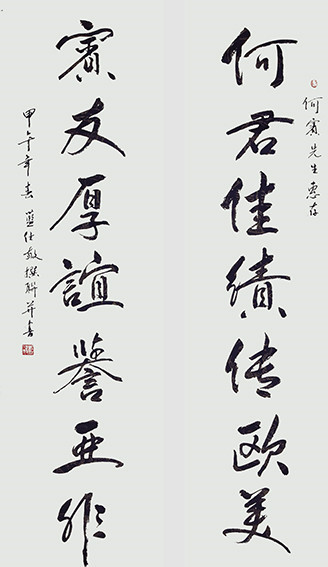 何賓先生惠存
何君佳績传歐美
賓友厚誼譽亚非
甲午年春 藍仕敏撰聯并書